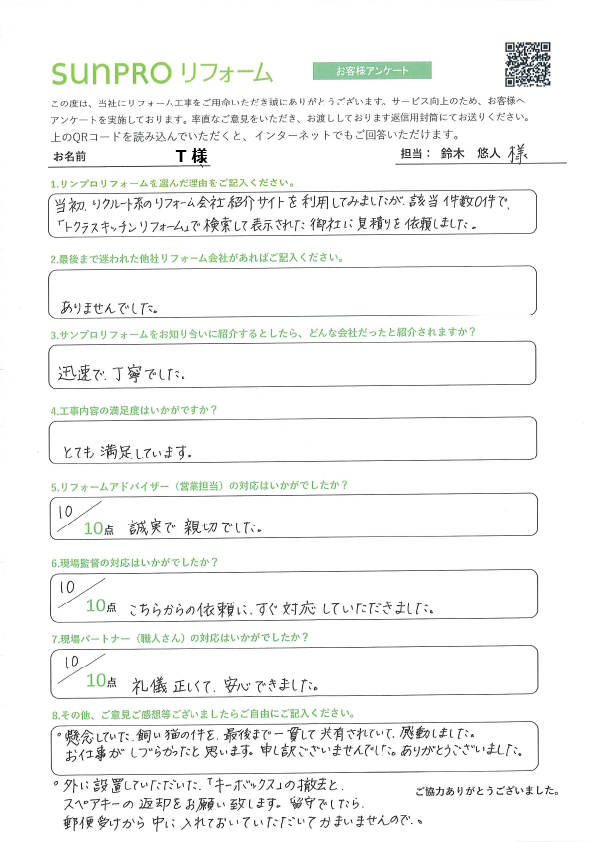 sunPRO リフォーム
お客様アンケート
この度は、当社にリフォーム工事をご用命いただき誠にありがとうございます。サービス向上のため、お客様へ
アンケートを実施しております。率直なご意見をいただき、お渡ししております返信用封筒にてお送りください。
上のQRコードを読み込んでいただくと、インターネットでもご回答いただけます。
お名前 T様 担当： 鈴木 悠人 様
1.リンプロリフォームを選んだ理由をご記入ください。
当初、リクルート系のリフォーム会社紹介サイトを利用してみましたが、該当件数0件で、
「トクラスキッチンリフォーム」で検索して表示された御社に見積りを依頼しました。
2.最後まで迷われた他社リフォーム会社があればご記入ください。
ありませんでした。
3.サンプロリフォームをお知り合いに紹介するとしたら、どんな会社だったと紹介されますか？
迅速で、丁寧でした。
4.工事内容の満足度はいかがですか？
とても満足しています。
5.リフォームアドバイザー（営業担当）の対応はいかがでしたか？
10/10点 誠実で親切でした。
6.現場監督の対応はいかがでしたか？
10/10点 こちらからの依頼に、すぐ対応していただきました。
7.現場パートナー（職人さん）の対応はいかがでしたか？
10/10点 礼儀正しくて、安心できました。
8.その他、ご意見ご感想等ございましたらご自由にご記入ください。
。懸念していた、飼い猫の件を、最後まで一貫して共有されていて、感動しました。
お仕事がしづらかったと思います。申し訳ございませんでした。ありがとうございました。
。外に設置していただいた、「キーボックス」の撤去と、
ご協力ありがとうございました。
スペアキーの返却をお願い致します。留守でしたら、
郵便受けから中に入れておいていただいてかまいませんので。。